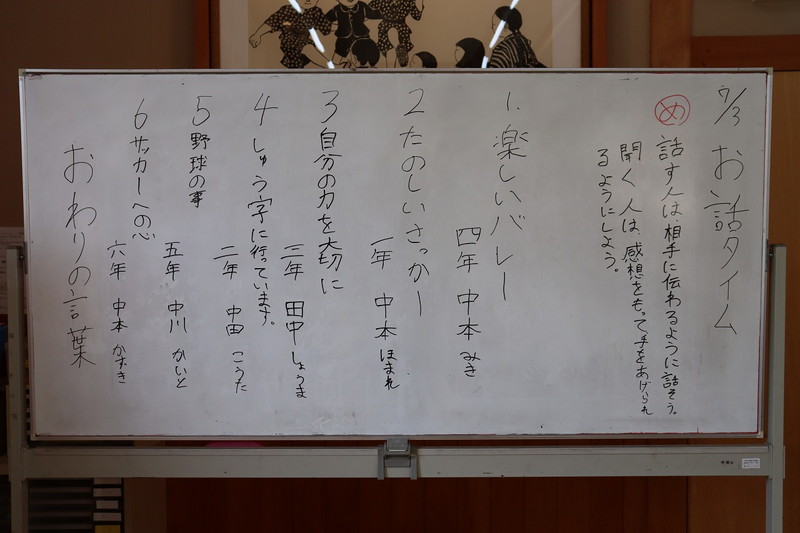 7/3 お話タイム
め 話す人は、相手に伝わるように話そう。
聞く人は、感想をもって手をあげられ
るようにしよう。
1. 楽しいバレー
四年 中本 みき
2 たのしいさっかー
一年 中本 ほまれ
3 自分の力を大切に
三年 田中 しょうま
4 しゅう字に行っています。
二年 中田 こうた
5 野球の事
五年 中川 かいと
6 サッカーへの心
六年 中本 かずき
おわりの言葉